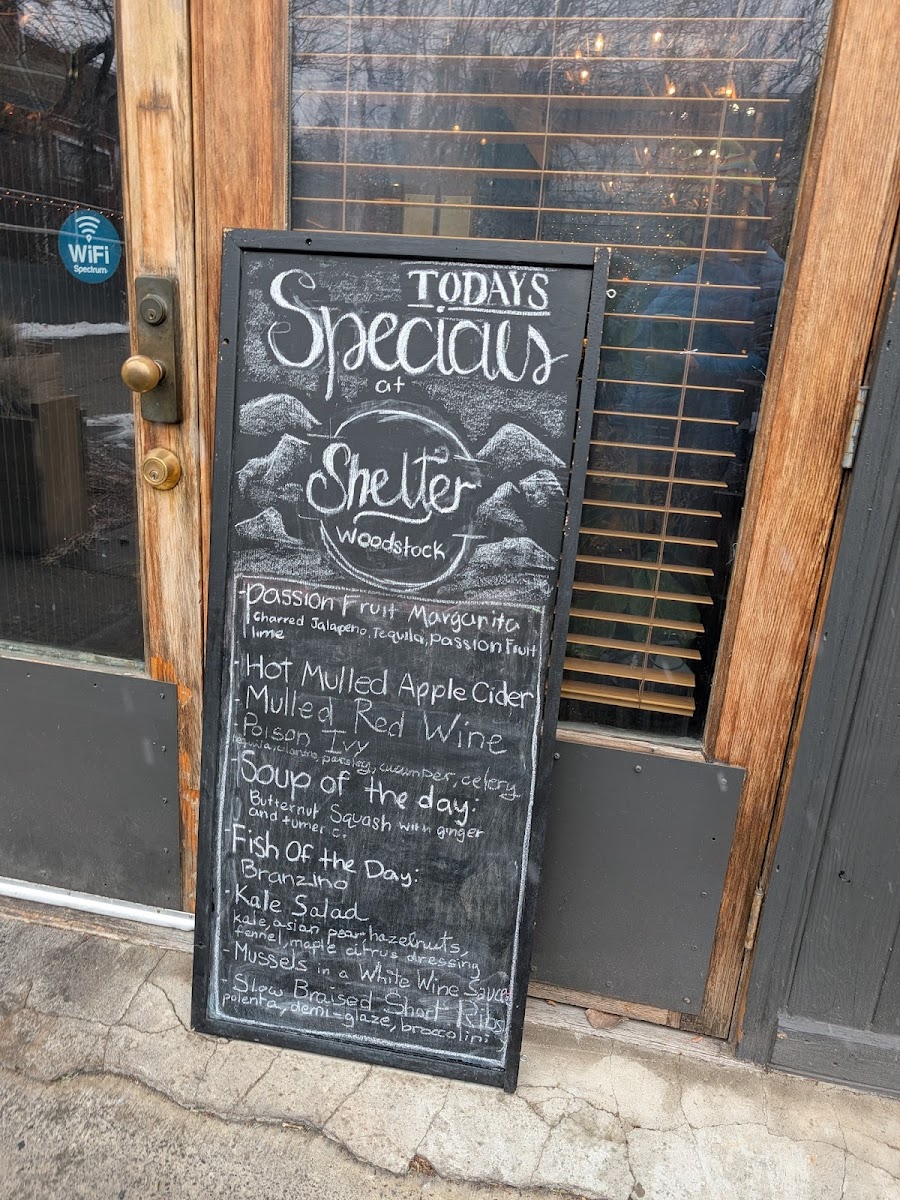 WiFi
Spectrum
TODAYS
Specials
at
Shelter
Woodstock
-Passion Fruit Margarita
charred Jalapeño, Tequila, Passion Fruit
lime
-Hot Mulled Apple Cider
-Mulled Red Wine
-Poison Ivy
tequila, cilantro, parsley, cucumber, celery
-Soup of the day:
Butternut Squash with ginger
and tumeric.
-Fish Of the Day:
Branzino
-Kale Salad
kale, asian pear, hazelnuts,
fennel, maple citrus dressing
-Mussels in a White Wine Sauce
-Slow Braised Short Ribs
polenta, demi-glaze, broccolini